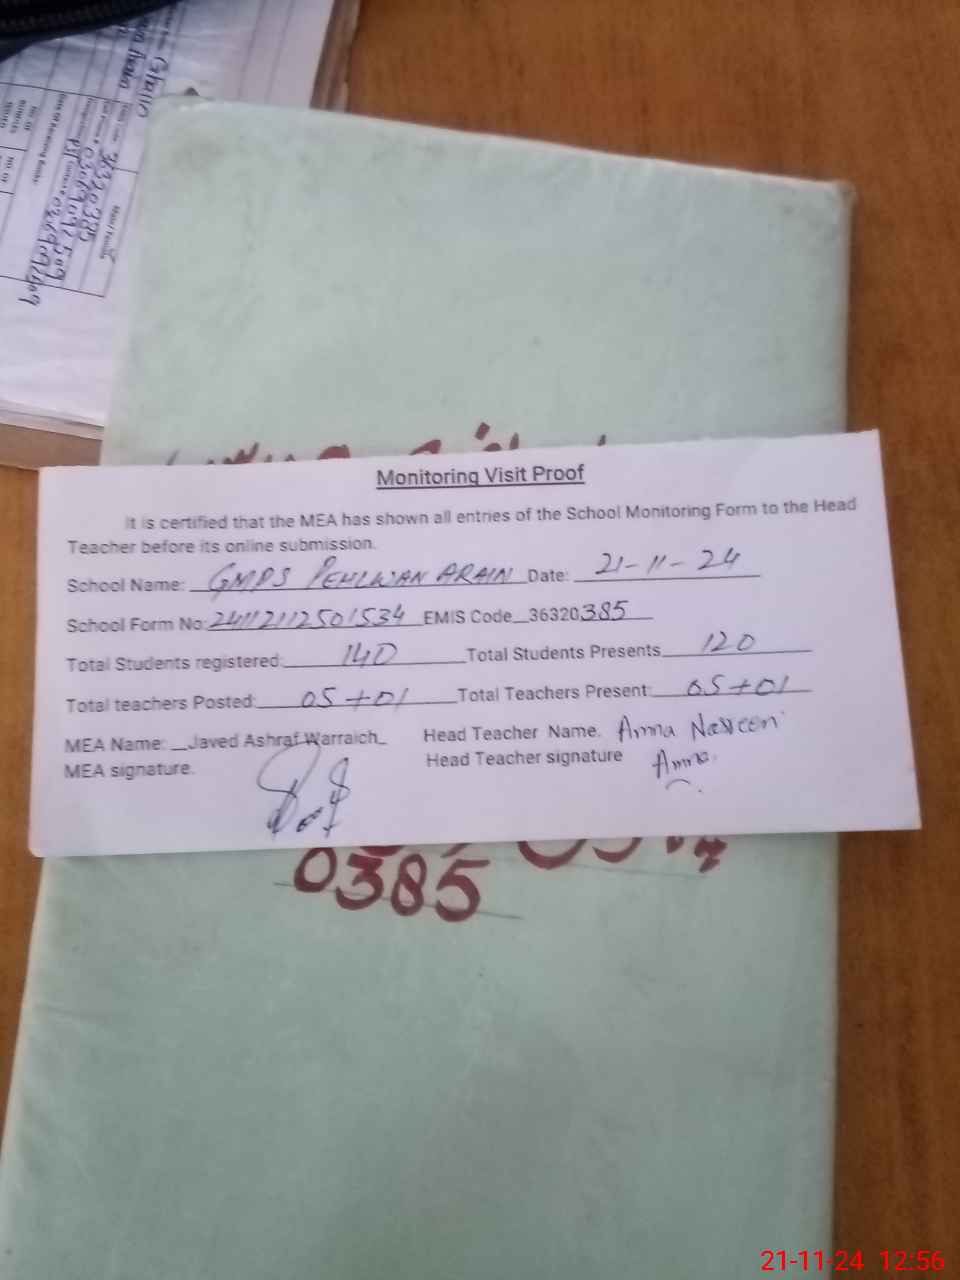 Monitoring Visit Proof
It is certified that the MEA has shown all entries of the School Monitoring Form to the Head
Teacher before its online submission.
School Name: GMPS PEHLWAN ARAIN Date: 21-11-24
School Form No: 24112112501534 EMIS Code 36320385
Total Students registered: 140 Total Students Presents 120
Total teachers Posted: 05+01 Total Teachers Present: 05+01
MEA Name: Javed Ashraf Warraich Head Teacher Name. Amna Nasreen
MEA signature. Head Teacher signature Amna.
0385
21-11-24 12:56